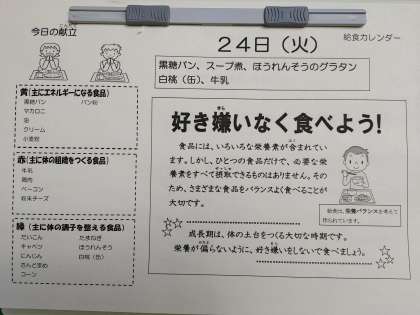 今日の献立
給食カレンダー
24日（火）
黒糖パン、スープ煮、ほうれんそうのグラタン
白桃（缶）、牛乳
黄(主にエネルギーになる食品)
黒糖パン　パン粉
マカロニ
油
クリーム
小麦粉
赤(主に体の組織をつくる食品)
牛乳
鶏肉
ベーコン
粉末チーズ
緑（主に体の調子を整える食品)
だいこん　たまねぎ
キャベツ　ほうれんそう
にんじん　白桃（缶）
さんどまめ
コーン
好き嫌いなく食べよう!
食品には、いろいろな栄養素が含まれてい
ます。しかし、ひとつの食品だけで、必要な栄
養素をすべて摂取できるものはありません。そ
のため、さまざまな食品をバランスよく食べることが
大切です。
給食は、栄養バランスを考えて
作られています。
成長期は、体の土台をつくる大切な時期です。
栄養が偏らないように、好き嫌いをしないで食べましょう。